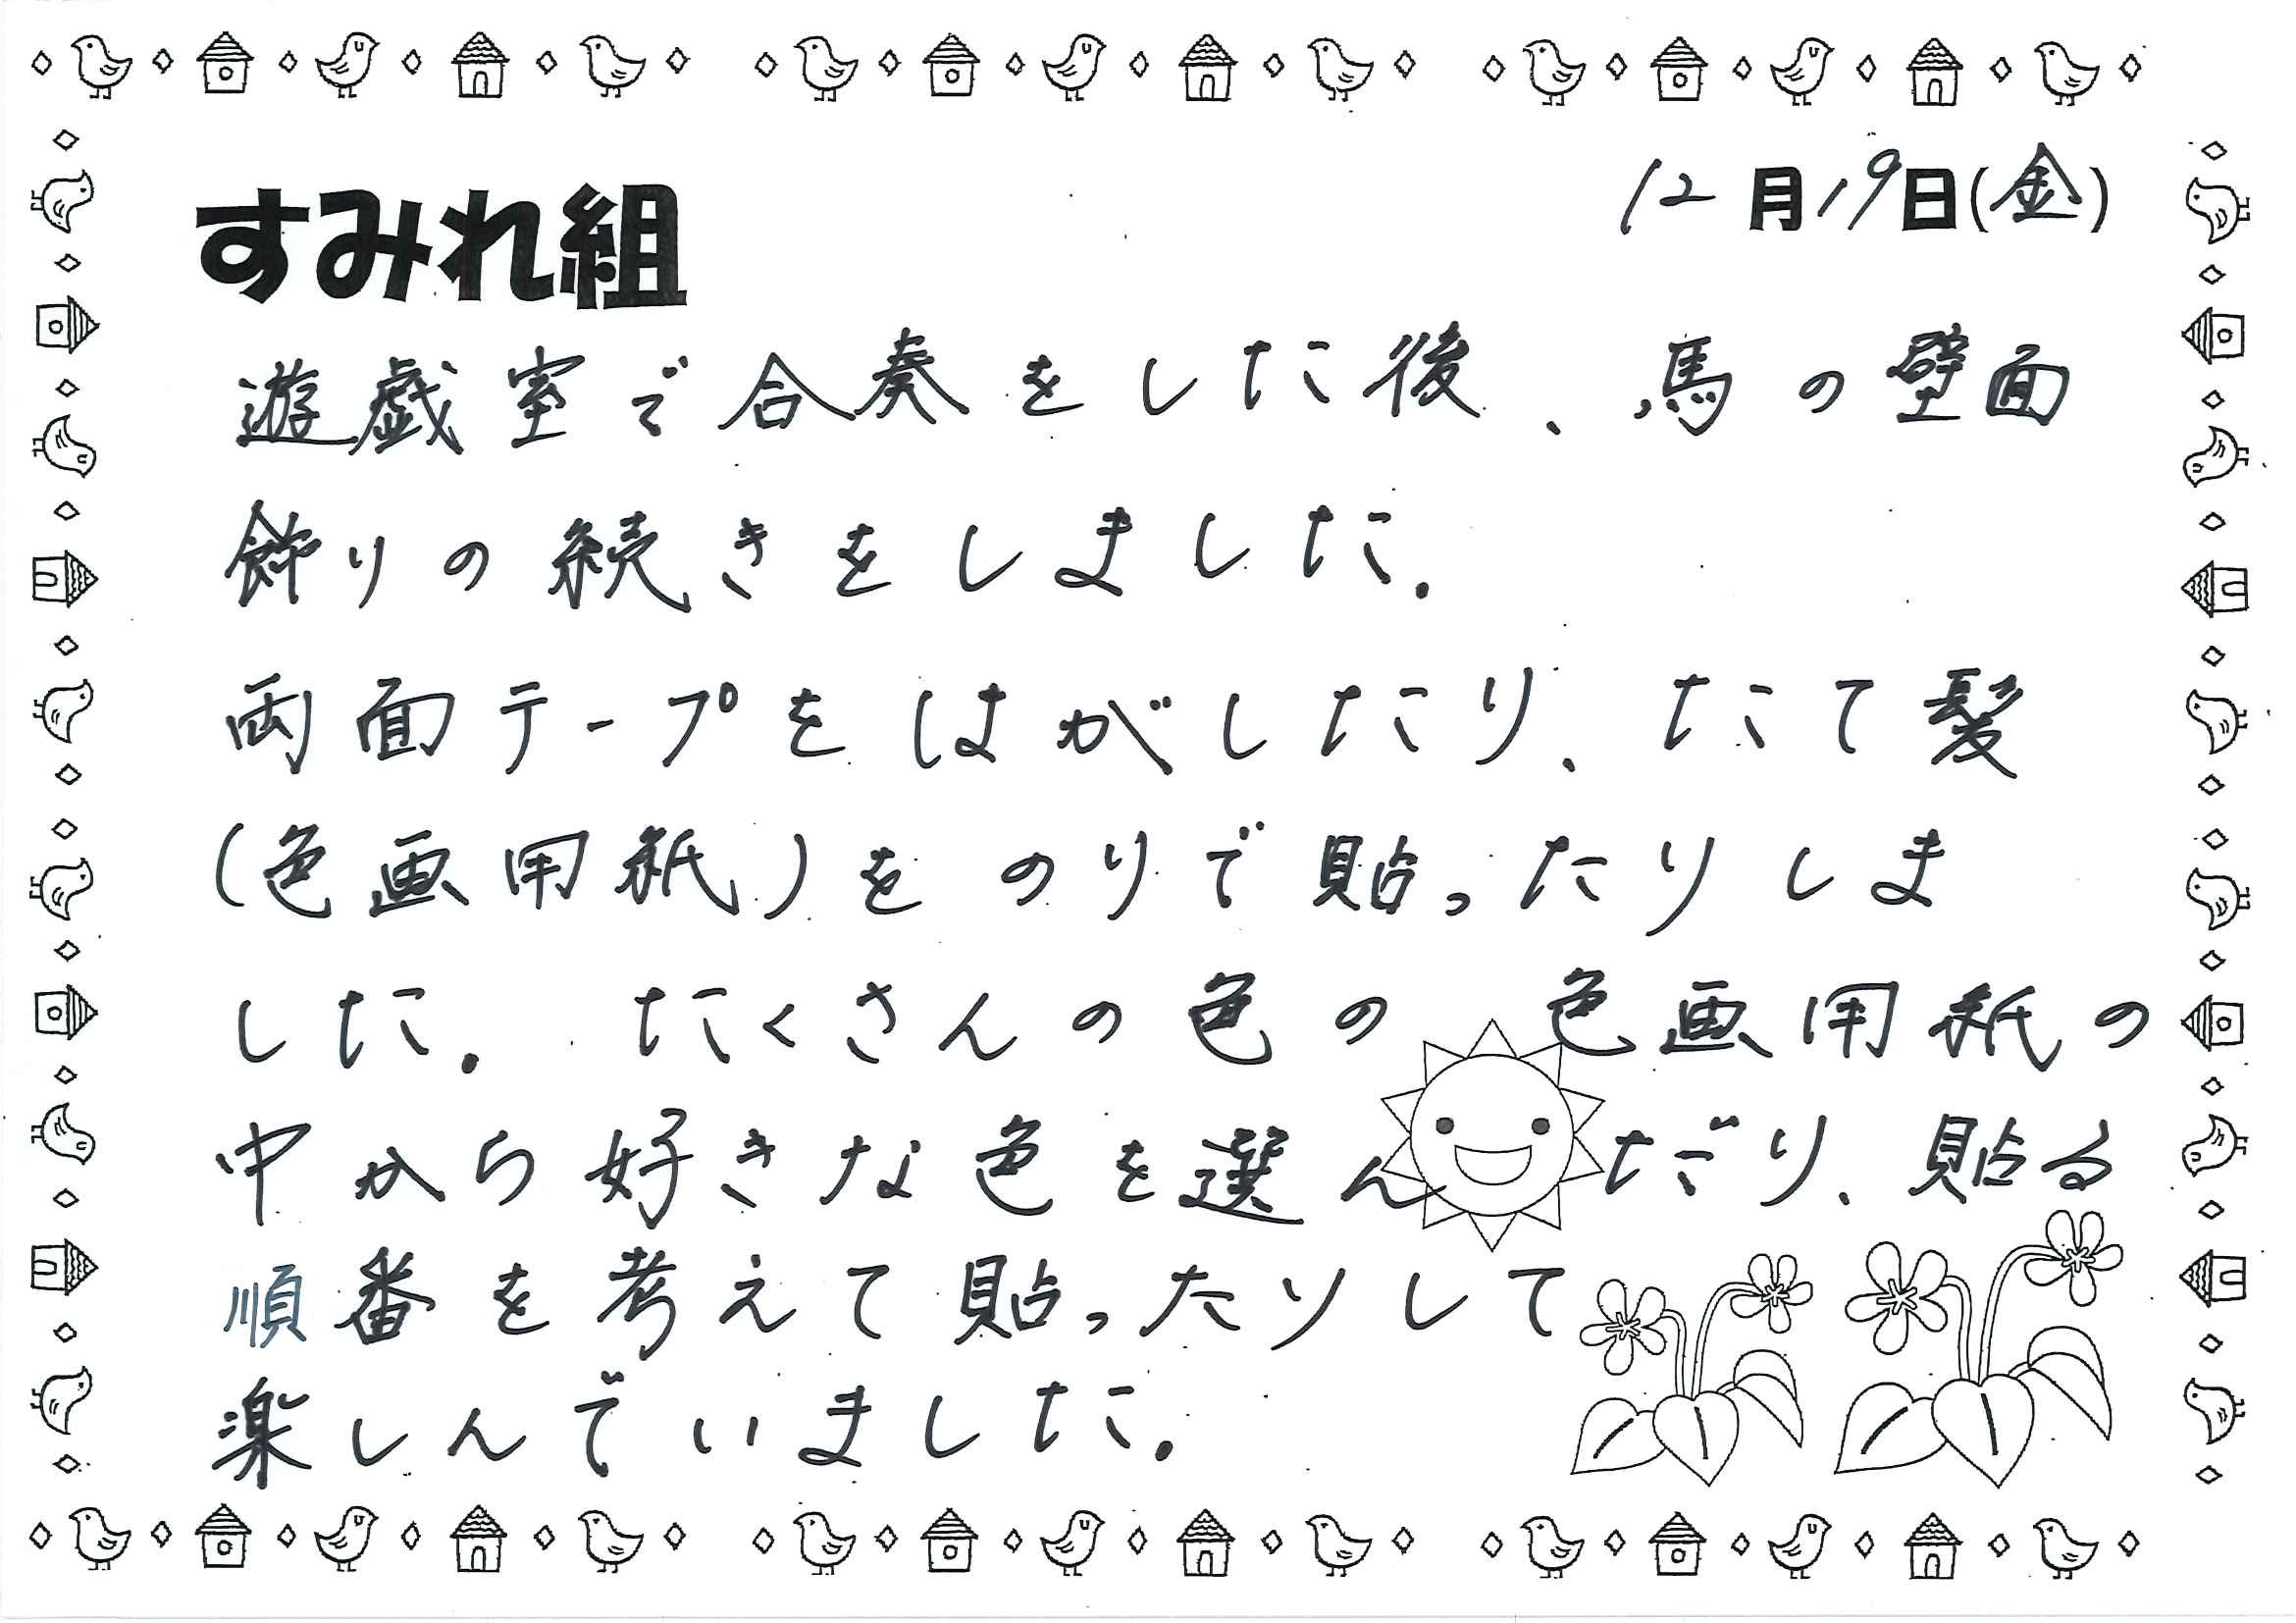 12月19日(金)
すみれ組
遊戯室で合奏をした後、馬の壁面
飾りの続きをしました.
両面テープをはがしたり、たて髪
(色画用紙)をのりで貼ったりしま
した. たくさんの色の色画用紙の
中から好きな色を選んだり、貼る
順番を考えて貼ったりして
楽しんでいました.